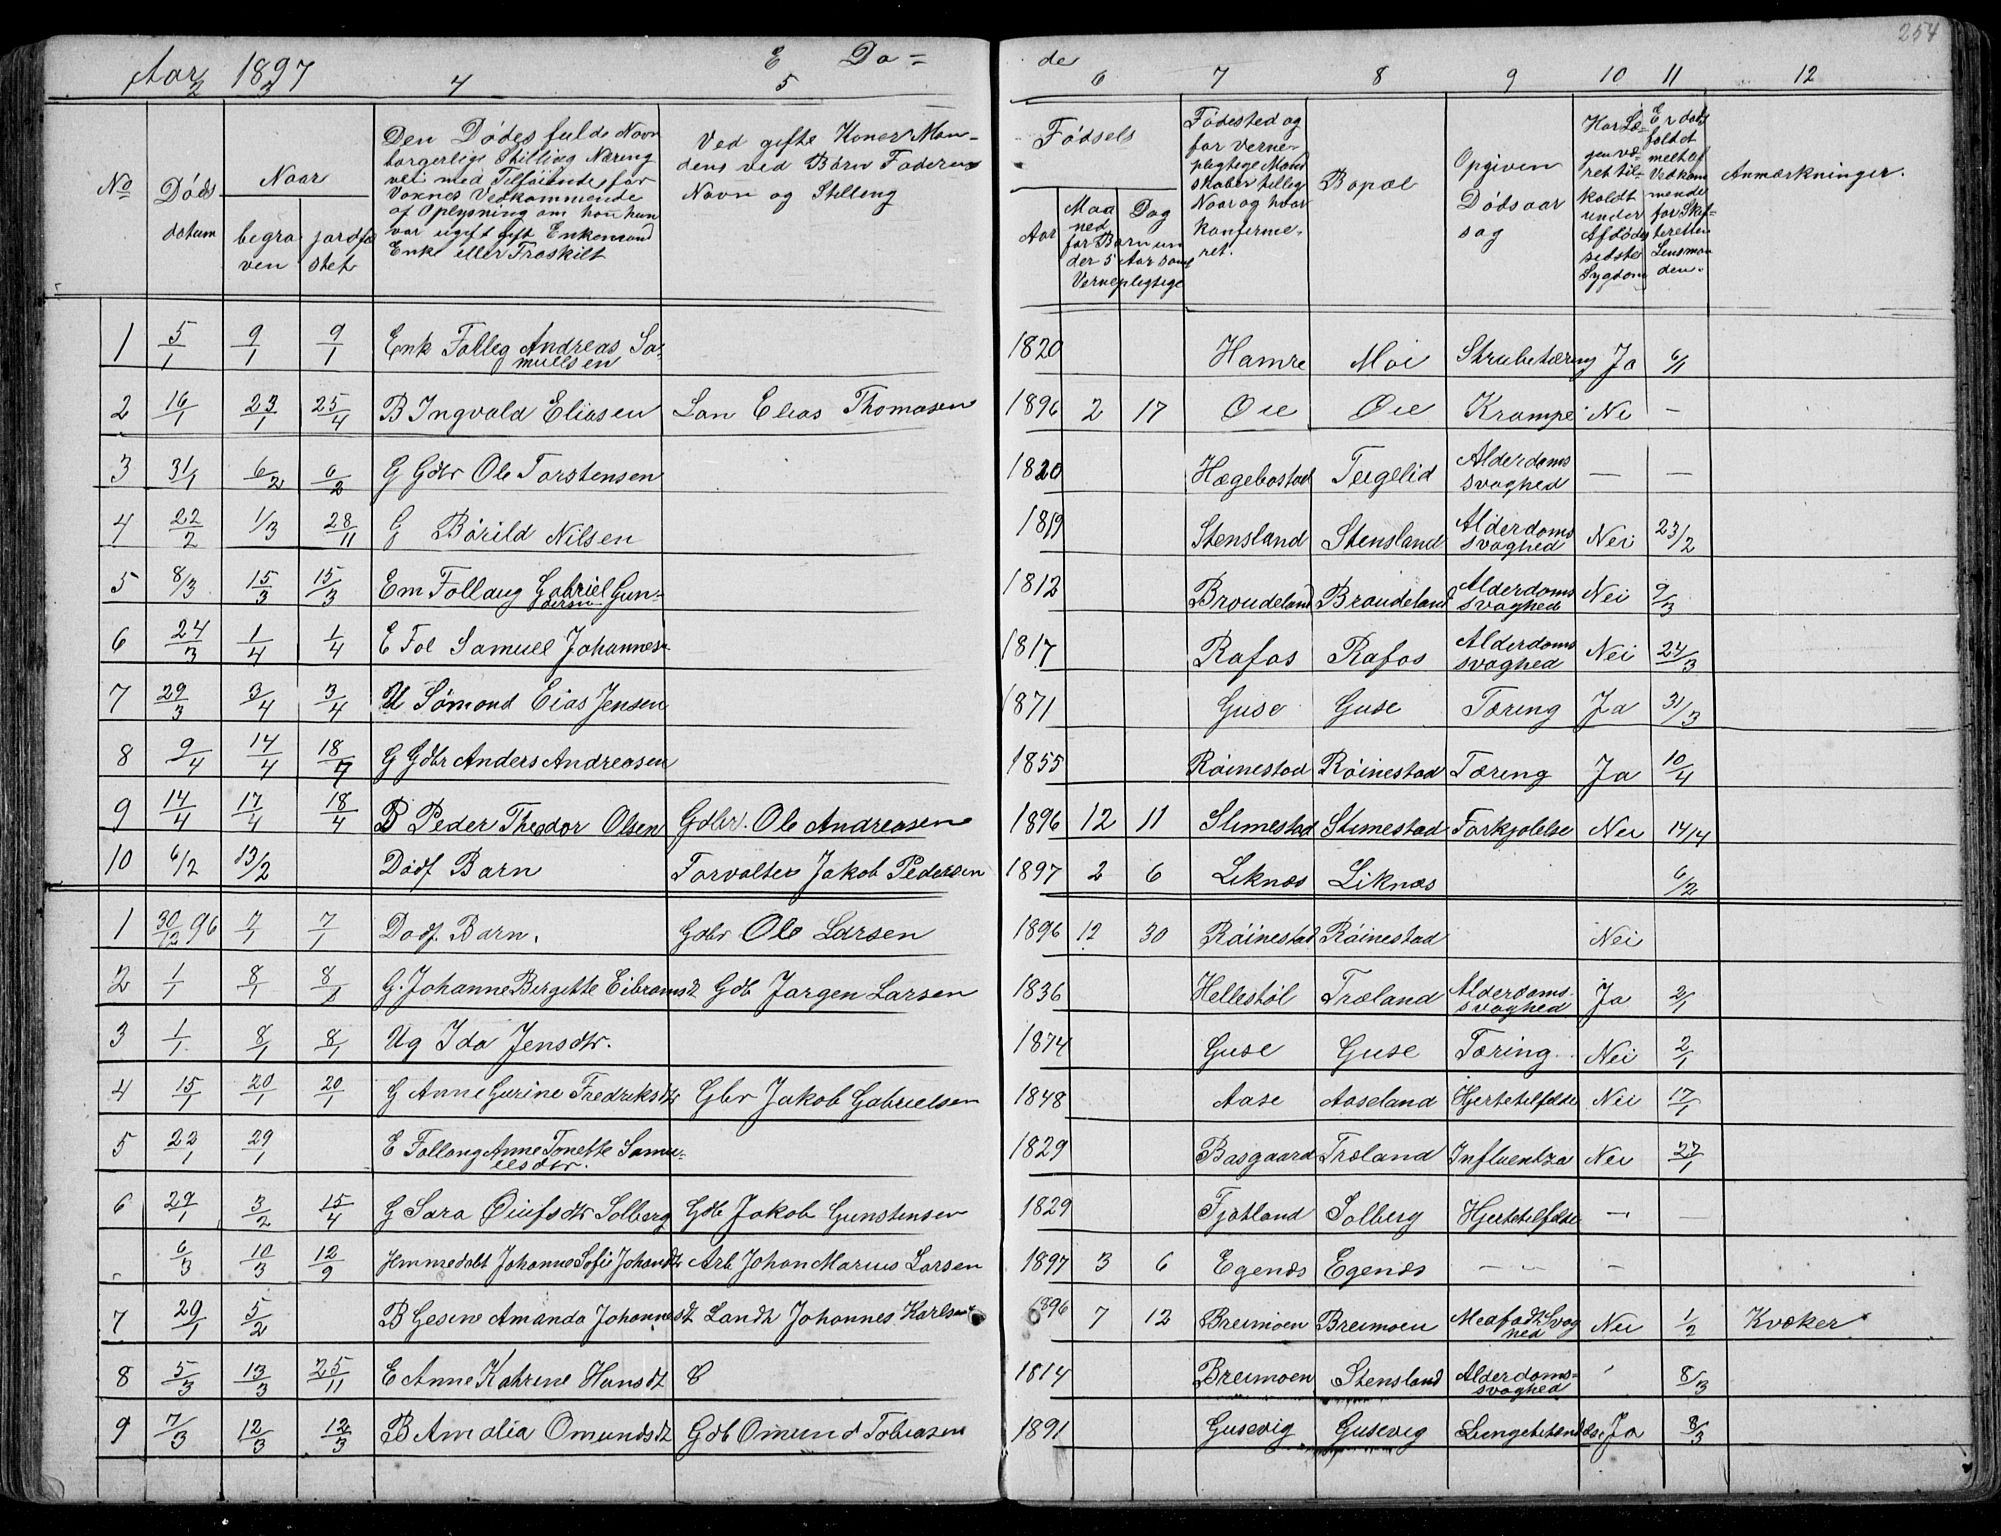 254
Aar 1897 E Dø= de
2 3 4 5 6 7 8 9 10 11 12
No
Døds
datum
Naar
begra
ven
jordfæ
stet
Den Dødes fulde Navn
borgerlige Stilling Næring
vei med Tilføiende for
Voxnes Vedkommende
af Oplysning om han hun
var ugift gift Enkemand
Enke eller Fraskilt
Ved gifte Koner Man-
dens ved Børn Faderens
Navn og Stilling
Fødsels
Aar
Maa
ned
Dag
for Børn un
der 5 Aar samt
Vernepligtige
Fødested og
for verne-
pligtige Mand
skaber tilleg
Naar og hvor
konfirme-
ret.
Bopæl
Opgiven
Dødsaar
sag
Har Læ-
gen væ-
ret til-
kaldt
under
Afdødes
sidste
Sygdom
Er døds
faldet
meldt af
Vedkom
mende
for Skif-
teretten
Lensman
den.
Anmærkninger.
1 5/1 9/1 9/1 Enk Folleg Andreas Sa- 1820 Hamre Moi Strubetæring Ja 6/1
muelsen
2 16/1 23/1 25/4 B Ingvald Eliasen Lan Elias Thomasen 1896 2 17 Øie Øie Krampe Nei —
3 31/1 6/2 6/2 G Gdbr Ole Torstensen 1820 Hægebostad Teigelid Alderdoms — —
svaghed
4 22/2 1/3 28/11 G Børild Nilsen 1819 Stensland Stensland Alderdoms Nei 23/2
svaghed
5 8/3 15/3 15/3 Em Follaug Gabriel Gun- 1812 Broudeland Braudeland Alderdoms Nei 9/3
dersn svaghed
6 24/3 1/4 1/4 E Fol Samuel Johannesn 1817 Rafos Rafos Alderdoms Nei 24/3
svaghed
7 29/3 3/4 3/4 U Sømand Elias Jensen 1871 Guse Guse Tæring Ja 31/3
8 9/4 14/4 18/7 G Gdbr Anders Andreasen 1855 Røinestad Røinestad Tæring Ja 10/4
9 14/4 17/4 18/4 B Peder Theodor Olsen Gdbr. Ole Andreasen 1896 12 11 Slimestad Slimestad Forkjølelse Nei 14/4
10 6/2 13/2 Dødf Barn Forvalter Jakob Pedersen 1897 2 6 Liknæs Liknæs 6/2
1 30/12 96 7/1 7/1 Dødf. Barn. Gdbr Ole Larsen 1896 12 30 Røinestad Røinestad Nei
2 1/1 8/1 8/1 G. Johanne Birgitte Eibramsdt Gdb Jørgen Larsen 1836 Hellestøl Træland Alderdoms- Ja 2/1
svaghed
3 1/1 8/1 8/1 Ug Ida Jensdtr. 1874 Guse Guse Tæring Nei 2/1
4 15/1 20/1 20/1 G Anne Gurine Fredriksdtr Gbr Jakob Gabrielsen 1848 Aase Aaseland Hjertetilfelde Nei 17/1
5 22/1 29/1 E Follong Anne Tonette Samu- 1829 Basgaard Træland Influentza Nei 27/1
elsdtr.
6 29/1 3/2 15/4 G Sara Øiufsdtr Solberg Gdb Jakob Gunstensen 1829 Fjotland Solberg Hjertetilfelde — —
6/3 10/3 12/9 Hmmedøbt Johanne Sofie Johansdtr Arb Johan Marius Larsen 1897 3 6 Egenæs Egenæs — — —
7 29/1 5/2 B Gesine Amanda Johannesdt Landh Johannes Karlsen 1896 7 12 Breimoen Breimoen Medfødt Svag Nei 1/2 Kvæker
hed
8 5/3 13/3 25/11 E Anne Kathrine Hansdt 1814 Breimoen Stensland Alderdoms- 8/3
svaghed
9 7/3 12/3 12/3 B Amalia Omundsdt Gdb Omund Tobiasen 1891 Gusevig Gusevig Lungebetændelse Ja 8/3